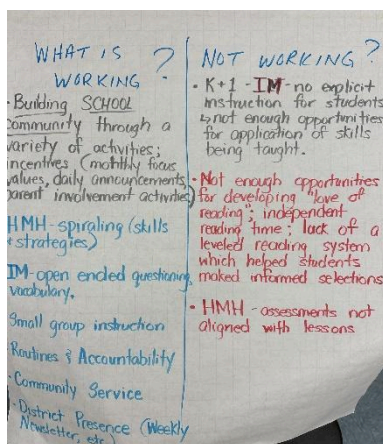 WHAT IS WORKING?
· Building SCHOOL
community through a
variety of activities;
incentives (mothly focus
values, daily announcements,
parent involvement activities)
HMH-spiraling (skills
+ strategies)
IM-open ended questioning,
vocabulary.
Small group instruction
· Routines & Accountability
· Community Service
· District Presence (Weekly
Newsletter, etc)
NOT WORKING?
· K+1 - IM - no explicit
instruction for students
↳ not enough opportunities
for application of skills
being taught.
· Not enough opportunities
for developing "love of
reading"; independent
reading time; lack of a
leveled reading system
which helped students
maked informed selections
· HMH - assessments not
aligned with lessons